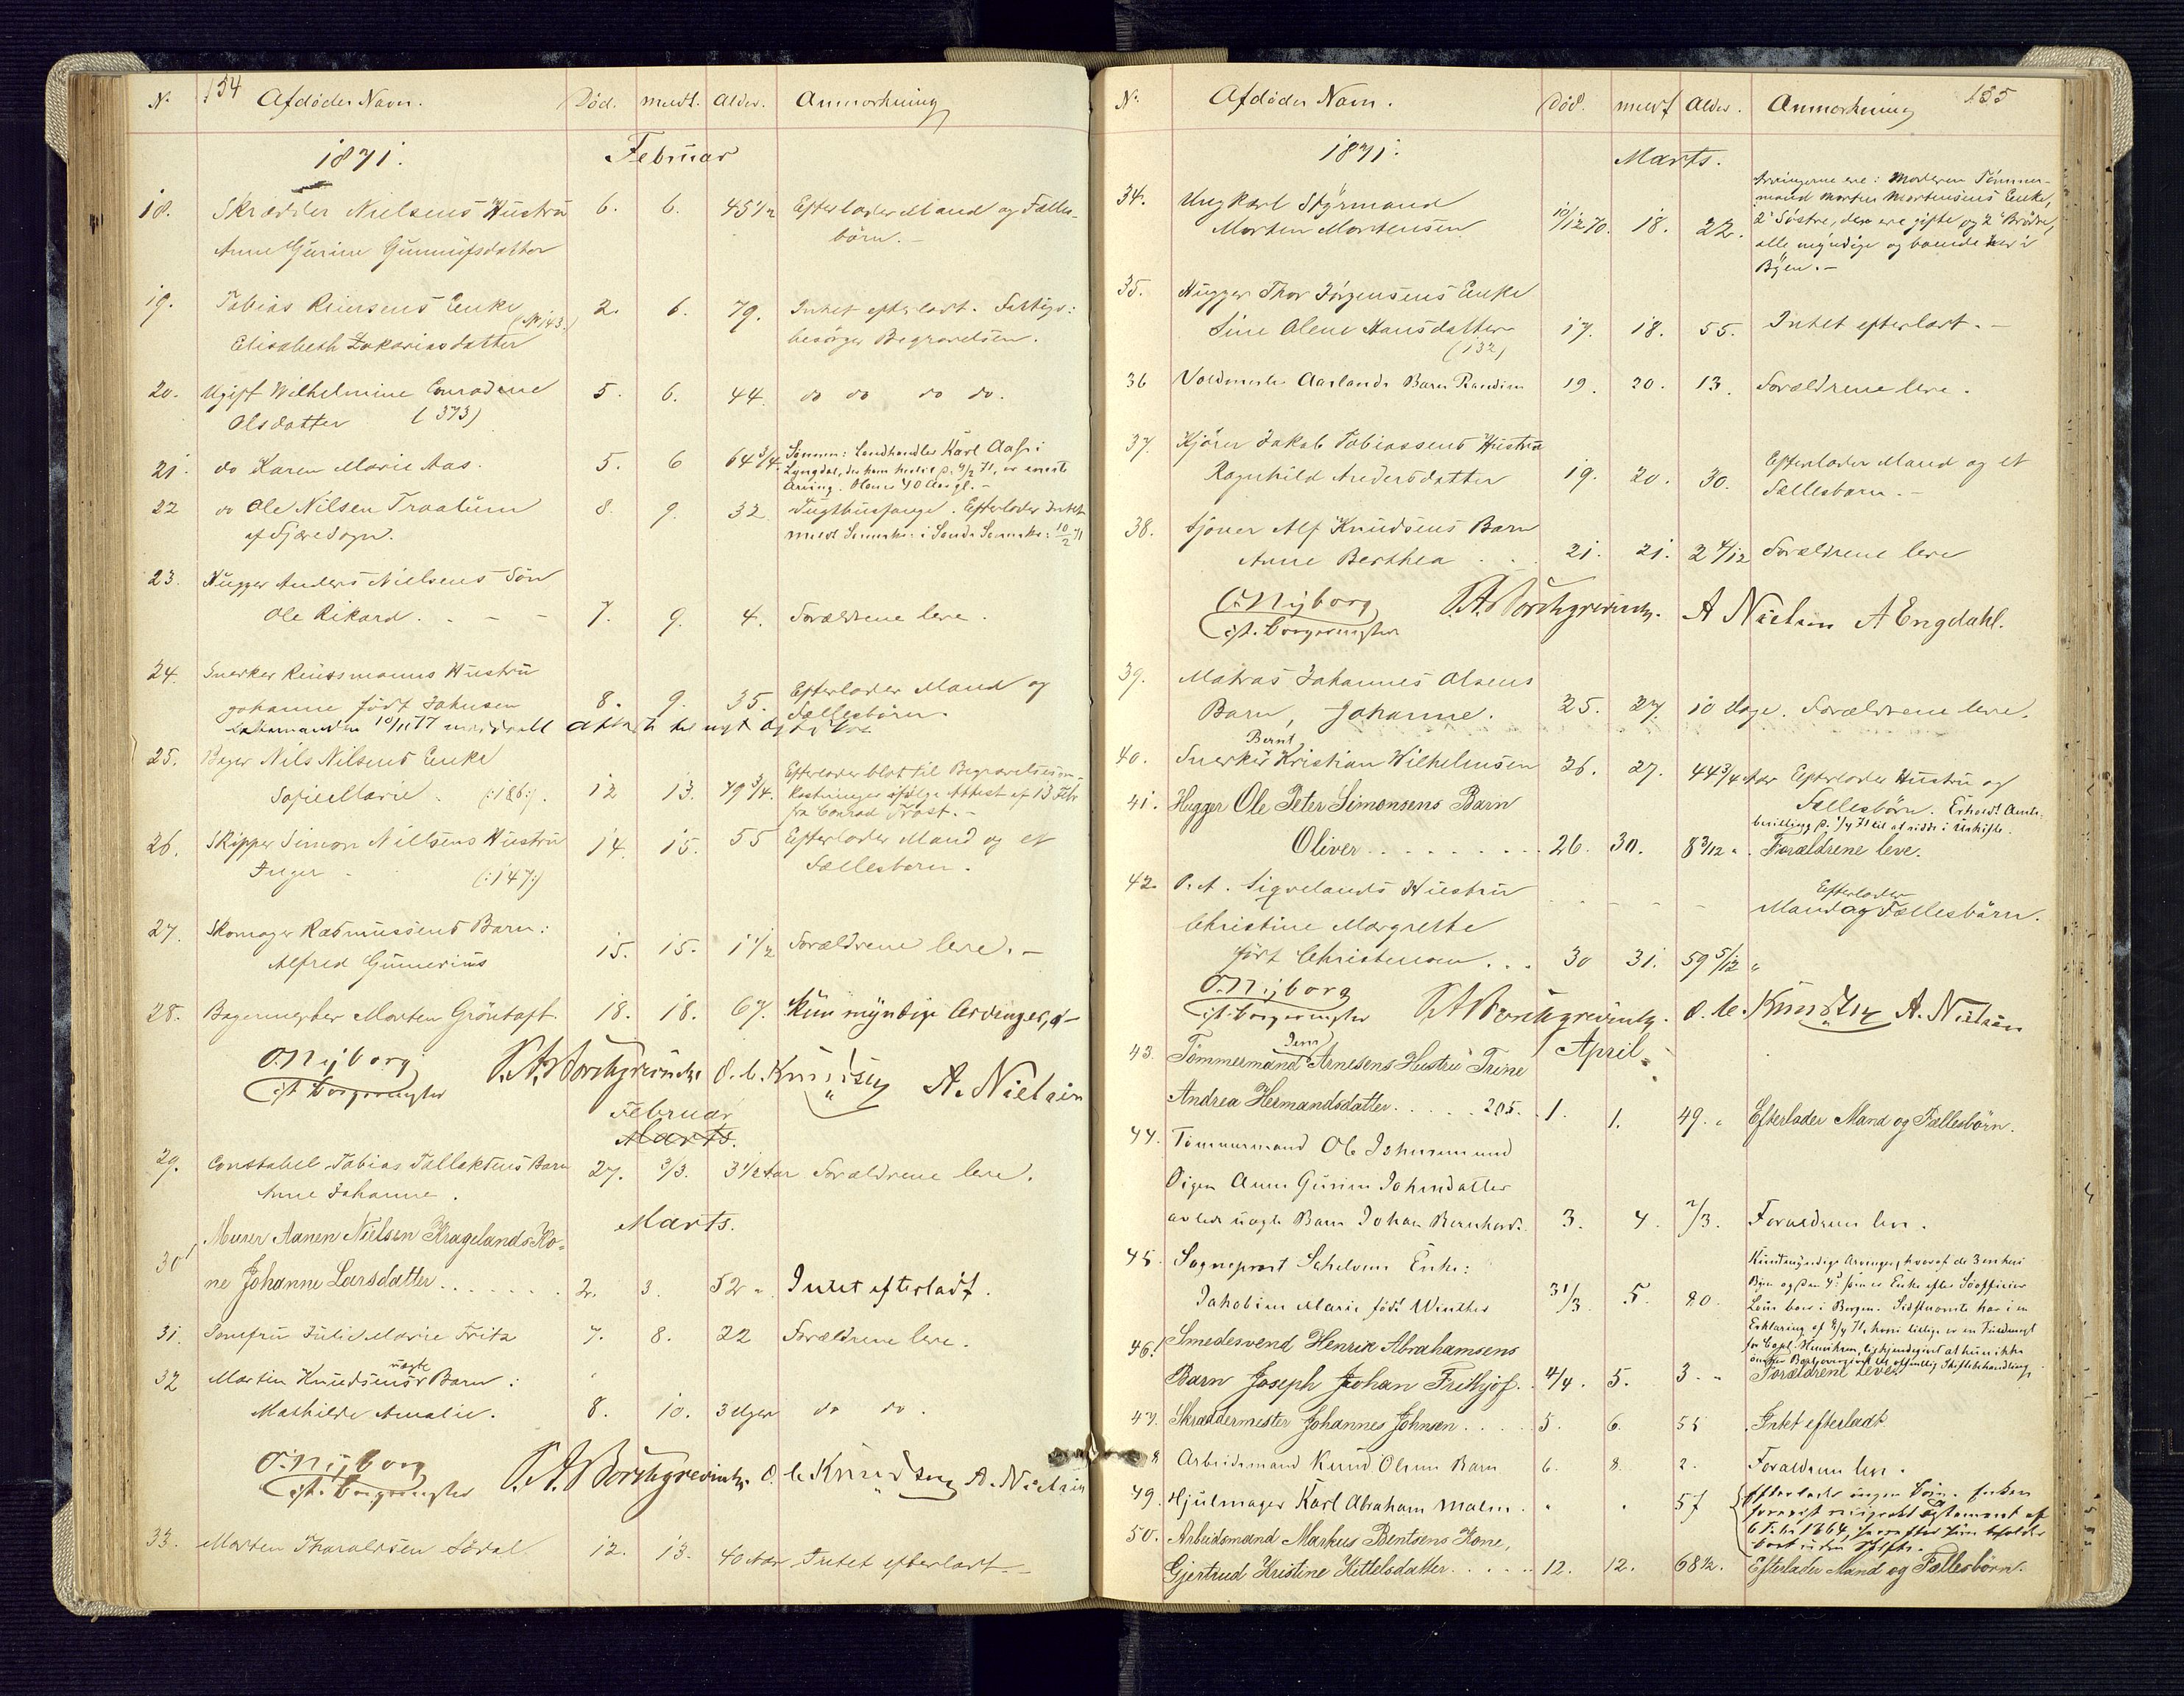 154
N. Afdødes Navn. Død. meldt. Alder. Anmerkning
1871. Februar
18. Skrædder Nielsens Hustru 6. 6. 45 1/2 Efterlader Mand og Fælles-
Anne Gurine Gunnufsdatter børn. –
19. Tobias Reiersens Enke 2. 6. 79. Intet efterladt. Fattigv:
Elisabeth Zakariasdatter besørger Begravelsen.
20. Ugift Wilhelmine Conradine 5. 6. 44. do do do do.
Olsdatter (373)
21. do Karen Marie Aas. 5. 6 64 3/4. Sønnen: Landhandler Karl Aas i
Lyngdal, eneste
Arving. 40 Aar gl. –
22 do Ole Nilsen Traatum 8. 9. 32. Tugthusfange. Efterlader Intet
af Fjære Sogn. meldt 10/2 71
23. Hugger Anders Nielsens Søn
Ole Rikard. 7. 9. 4. Forældrene leve.
24. Snerker Reinsmanns Hustru
Johanne født Johnsen 8. 9. 35. Efterlader Mand og
Fællesbørn.
10/11 77 meddeelt
25. Bager Nils Nilsens Enke
Sofie Marie. (:186:). 12 13. 79 3/4. Efterlader blot til Begravelsesom-
kostninger ifølge Attest af 13 Febr
fra Conrad Frost. –
26. Skipper Simon Nilsens Hustru 14. 15. 55 Efterlader Mand og et
Inger (:147:) Fællesbarn.
27. Skomager Rasmussens Barn:
Alfred Gunerius 15. 15. 1 1/2 Forældrene leve. –
28. Bagermester Morten Gröntoft. 18. 18. 67. Kun myndige Arvinger, –
O. Nyborg S. A. Borchgrevink. O. C. Knudsen A. Nielsen
cst. Borgermester
Februar
Marts.
29. Constabel Tobias Tallaksens Barn 27. 3/3. 3 1/2 Aar Forældrene leve.
Anne Johanne.
Marts.
30 Murer Aanen Nielsen Kragelands Ko-
ne Johanne Larsdatter . . . . . . . 2. 3. 52 „ Intet efterladt.
31. Jomfru Julie Marie Fritz 7. 8. 22 Forældrene leve.
32 Martin Knudsens uægte Barn:
Mathilde Amalie. 8. 10. 3 Uger do do.
O. Nyborg S. A. Borchgrevink. O. C. Knudsen A. Nielsen
cst. Borgermester
33. Morten Tharaldsen 12. 13. 40 Aar Intet efterladt. –
155
N. Afdødes Navn. Død. meldt Alder. Anmerkning
1871. Marts.
34. Ungkarl Styrmand Arvingerne ere: Moderen Tömmer-
Morten Mortensen 10/12 70. 18. 22. mand Morten Mortensens Enke,
2 Söstre, der ere gifte og 2 Brödre,
alle myndige og boende her i
Byen. –
35. Hugger Thor Jörgensens Enke
Sine Olene Hansdatter 17. 18. 55. Intet efterladt. –
(132)
36 Voldmester Aarlands Barn Randine 19. 20. 13. Forældrene leve.
37. Kjører Jakob Tobiassens Hustru
Ragnhild Andersdatter 19. 20. 30. Efterlader Mand og et
Fællesbarn. –
38. Kjører Alf Knudsens Barn
Anne Berthea . . 21. 21. 2 4/12 Forældrene leve
O. Nyborg S. A. Borchgrevink. A Nielsen A Engdahl.
cst. Borgermester
39. Matros Johannes Olsens
Barn, Johanne. 25. 27. 10 Dage. Forældrene leve.
40. Snerker Bernt Kristian Wilhelmsen 26. 27. 44 3/4 Aar Efterlader Hustru og
Fællesbørn. Erholdt Amts-
bevilling til at sidde i Uskifte.
41. Hugger Ole Peter Simonsens Barn
Oliver . . . . . . . . 26. 30. 8 3/12 „ Forældrene leve.
42. O. A. Sigvelands Hustru Efterlader
Christine Margrethe Mand og Fællesbørn.
født Christensen . . . 30 31. 59 5/12 „
O. Nyborg S. A. Borchgrevink. O. C. Knudsen A. Nielsen
cst. Borgermester
April.
43. Tömmermand Jens Arnesens Hustru Trine
Andrea Hermandsdatter . . . . . 205. 1. 1. 49. „ Efterlader Mand og Fællesbörn.
44. Tömmermand Ole Johnsen und
Pigen Anne Gurine Johnsdatter
avlede uægte Barn Johan Bernhard. 3. 4. 2/3. Forældrene leve.
45. Sogneprest Schelvens Enke:
Jakobine Marie født Winther 31/3. 5. 80. Kun myndige Arvinger, hvoraf de 3 ere her i
Byen og den 4de Enke efter Söofficier
boer i Bergen. Sidstnævnte har i en
Erklæring af
46. Smedesvend Henrik Abrahamsens
Barn Joseph Johan Frithjof. 4/4. 5. 3. „ Forældrene leve.
47. Skræddermester Johannes Johnsen . . . . . 5. 6. 55 Intet efterladt.
8 Arbeidsmand Knud Olsens Barn 6. 8. 2. Forældrene leve.
49. Hjulmager Karl Abraham Malm. „ „ 57 Efterlader ingen Børn. Enken
Testament af
1864,
50. Arbeidsmand Markus Bentsens Kone,
Gjertrud Kristine Kittelsdatter . . . . . 12. 12. 68 1/2. Efterlader Mand og Fællesbörn.